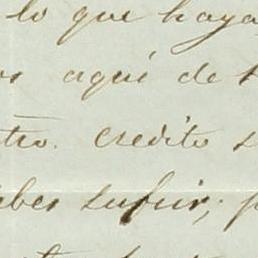 lo que haya
aqui de
tro. credito s
aber sufrir; p